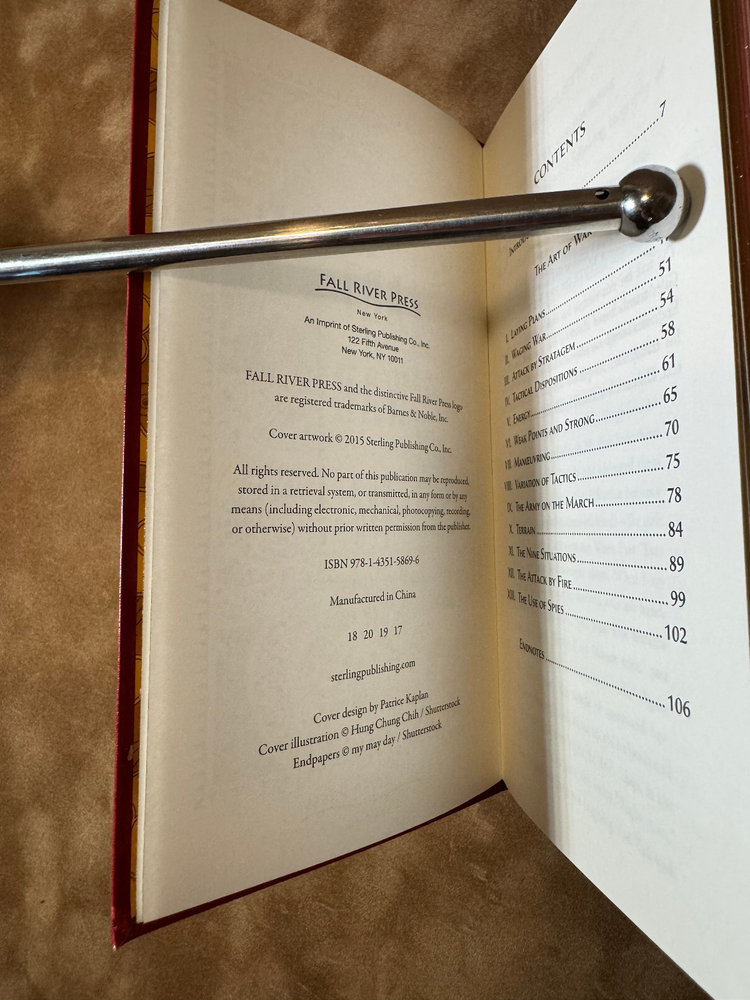 FALL RIVER PRESS
New York
An Imprint of Sterling Publishing Co., Inc.
122 Fifth Avenue
New York, NY 10011
FALL RIVER PRESS and the distinctive Fall River Press logo
are registered trademarks of Barnes & Noble, Inc.
Cover artwork © 2015 Sterling Publishing Co., Inc.
All rights reserved. No part of this publication may be reproduced,
stored in a retrieval system, or transmitted, in any form or by any
means (including electronic, mechanical, photocopying, recording,
or otherwise) without prior written permission from the publisher.
ISBN 978-1-4351-5869-6
Manufactured in China
18 20 19 17
sterlingpublishing.com
Cover design by Patrice Kaplan
Cover illustration © Hung Chung Chih / Shutterstock
Endpapers © my may day / Shutterstock
CONTENTS
7
THE ART OF WAR
I. LAYING PLANS
II. WAGING WAR 51
III. ATTACK BY STRATAGEM 54
IV. TACTICAL DISPOSITIONS 58
V. ENERGY 61
VI. WEAK POINTS AND STRONG 65
VII. MANŒUVRING 70
VIII. VARIATION OF TACTICS 75
IX. THE ARMY ON THE MARCH 78
X. TERRAIN 84
XI. THE NINE SITUATIONS 89
XII. THE ATTACK BY FIRE 99
XIII. THE USE OF SPIES 102
ENDNOTES 106